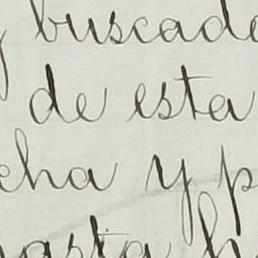 y buscado
de esta
cha y p
hasta h